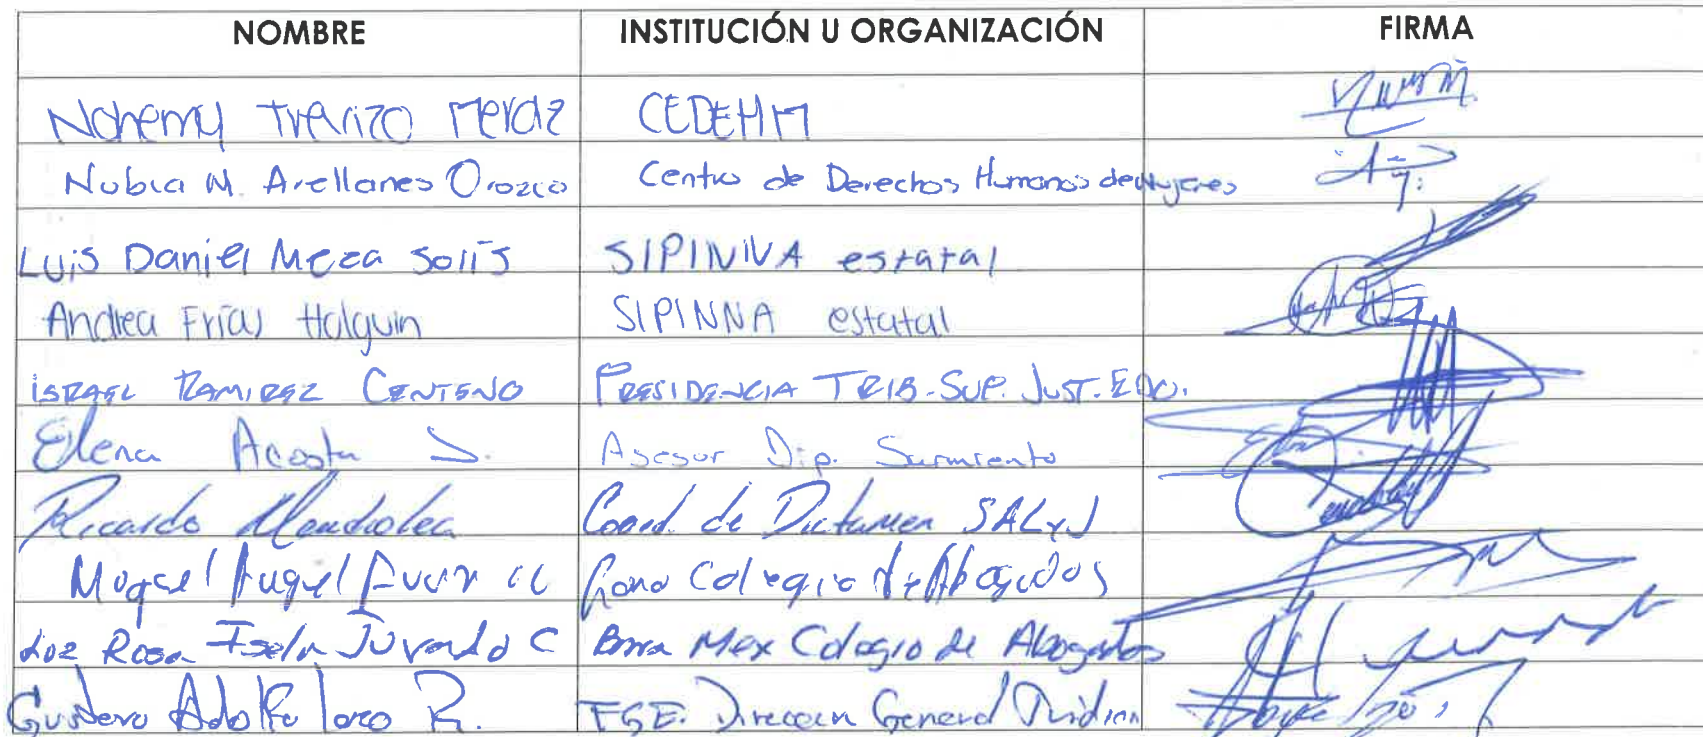 NOMBRE INSTITUCIÓN U ORGANIZACIÓN FIRMA
Nohemy Trevizo Meraz CEDEHM
Nubia M. Arellanes Orozco Centro de Derechos Humanos de Mujeres
Luis Daniel Meza Solís SIPINNA estatal
Andrea Frías Holguin SIPINNA estatal
ISRAEL RAMIREZ CENTENO PRESIDENCIA TRIB. SUP. JUST. EDO.
Elena Acosta S. Asesor Dip. Sarmiento
Ricardo Mendiolea Coord. de Dictamen SALyJ
Miguel Angel Colegio de Abogados
Luz Rosa Isela Jurado C Barra Mex Colegio de Abogados
Gustavo Adolfo R. FGE. Direccn General